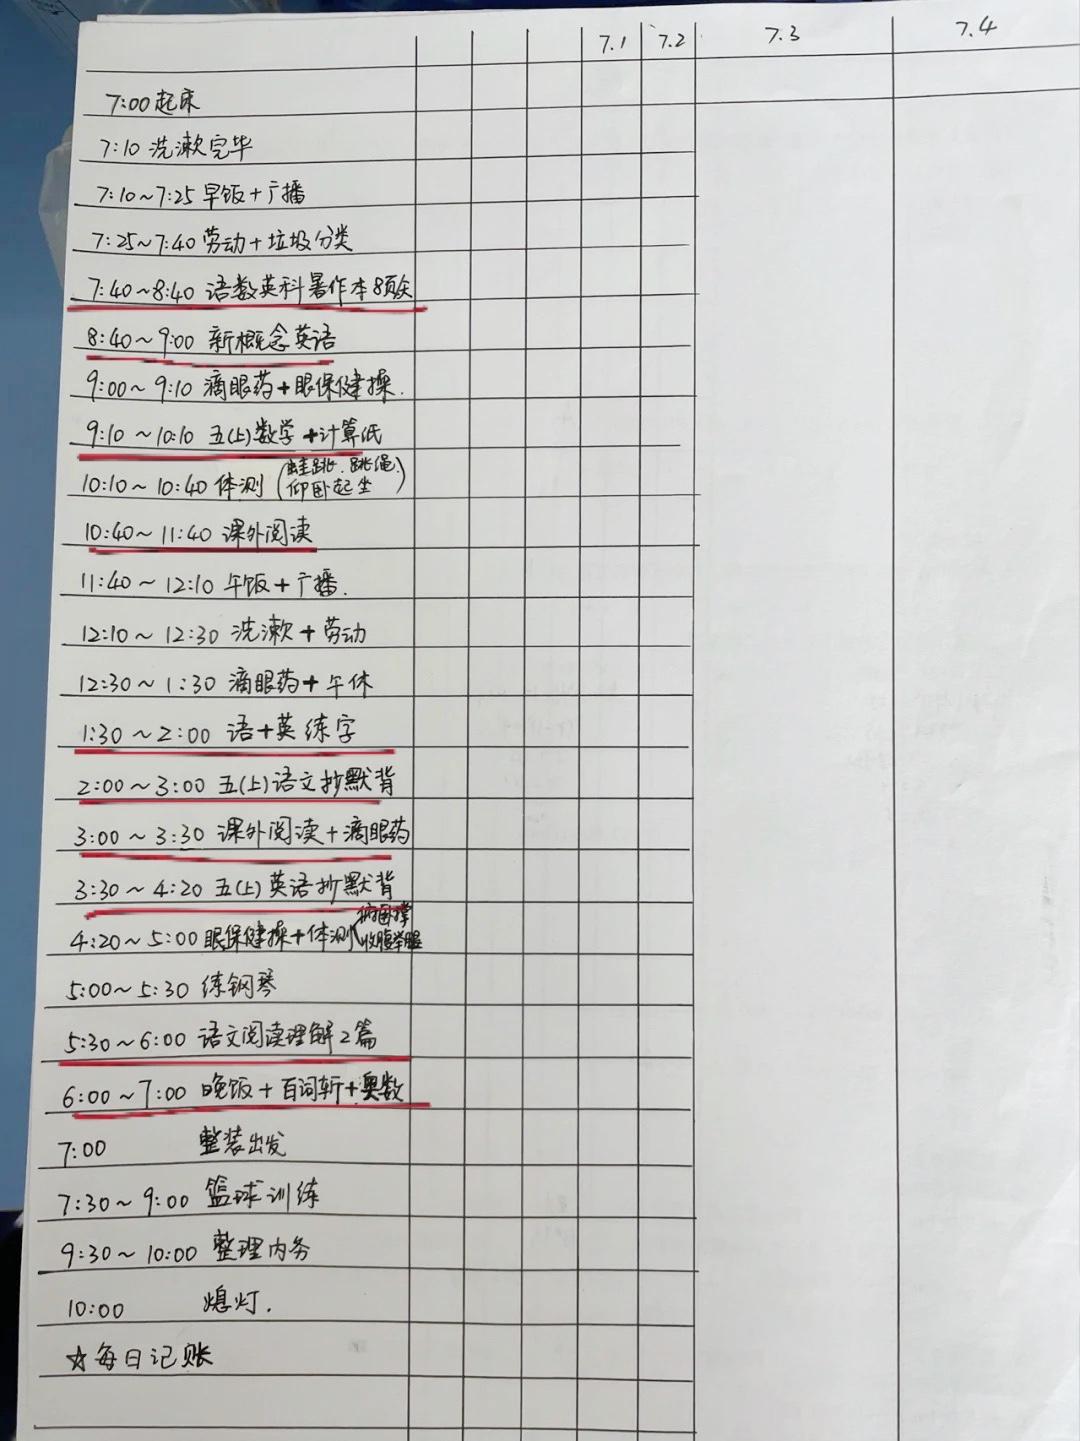 7.1 7.2 7.3 7.4
7:00 起床
7:10 洗漱完毕
7:10~7:25 早饭+广播
7:25~7:40 劳动+垃圾分类
7:40~8:40 语数英科暑作本8页/天
8:40~9:00 新概念英语
9:00~9:10 滴眼药+眼保健操.
9:10~10:10 五(上)数学+计算纸
10:10~10:40 体测(蛙跳.跳绳.
仰卧起坐)
10:40~11:40 课外阅读
11:40~12:10 午饭+广播.
12:10~12:30 洗漱+劳动
12:30~1:30 滴眼药+午休
1:30~2:00 语+英 练字
2:00~3:00 五(上)语文抄默背
3:00~3:30 课外阅读+滴眼药
3:30~4:20 五(上)英语抄默背
4:20~5:00 眼保健操+体测(俯卧撑
收腹举腿
5:00~5:30 练钢琴
5:30~6:00 语文阅读理解2篇
6:00~7:00 晚饭+百词斩+奥数
7:00 整装出发
7:30~9:00 篮球训练
9:30~10:00 整理内务
10:00 熄灯.
☆每日记账